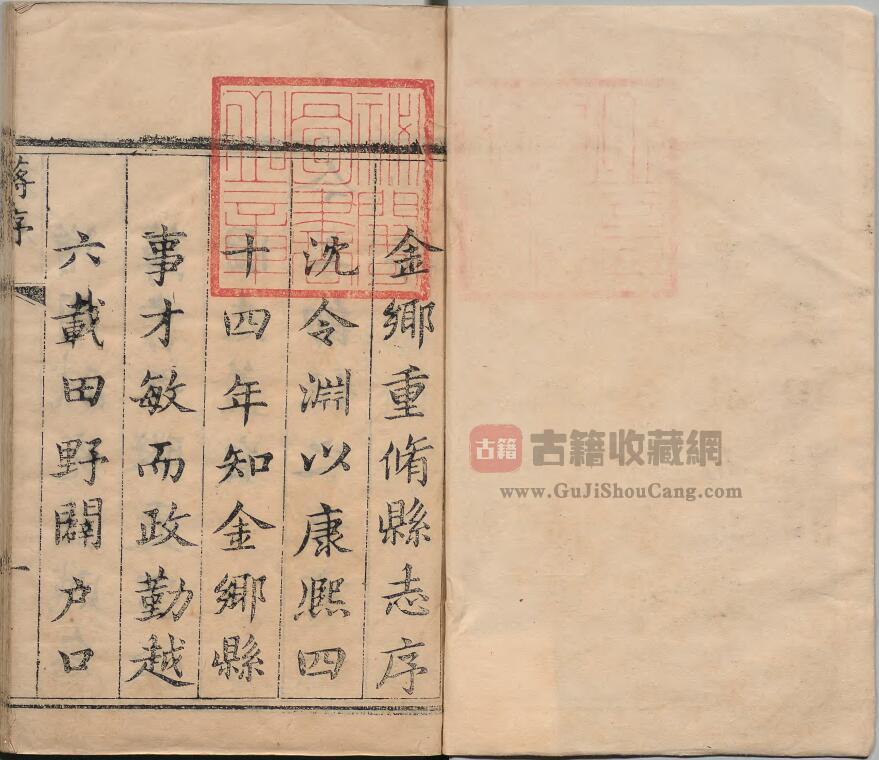 金鄉重脩縣志序
沈令淵以康熈四
十四年知金鄉縣
事才敏而政勤越
六載田野闢户口
蔣序
一
古籍
古籍收藏網
www.GuJiShouCang.com